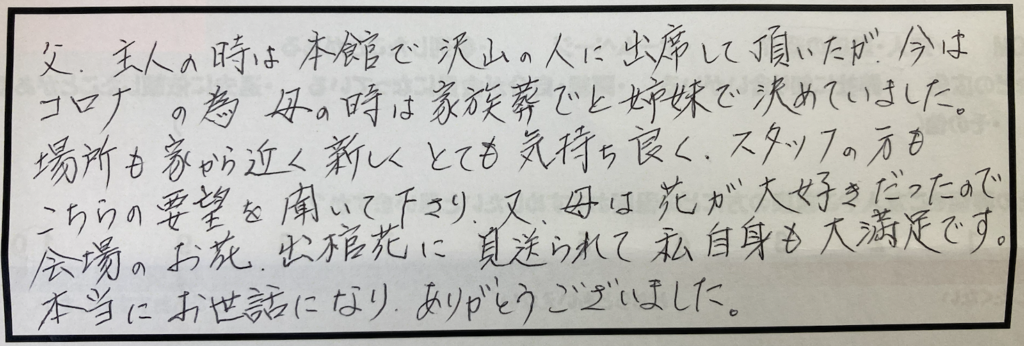 父 主人の時は本館で沢山の人に出席して頂いたが、今は
コロナの為 母の時は家族葬でと姉妹で決めていました。
場所も家から近く新しくとても気持ち良く、スタッフの方も
こちらの要望を聞いて下さり、又 母は花が大好きだったので
会場のお花、出棺花に見送られて私自身も大満足です。
本当にお世話になり、ありがとうございました。